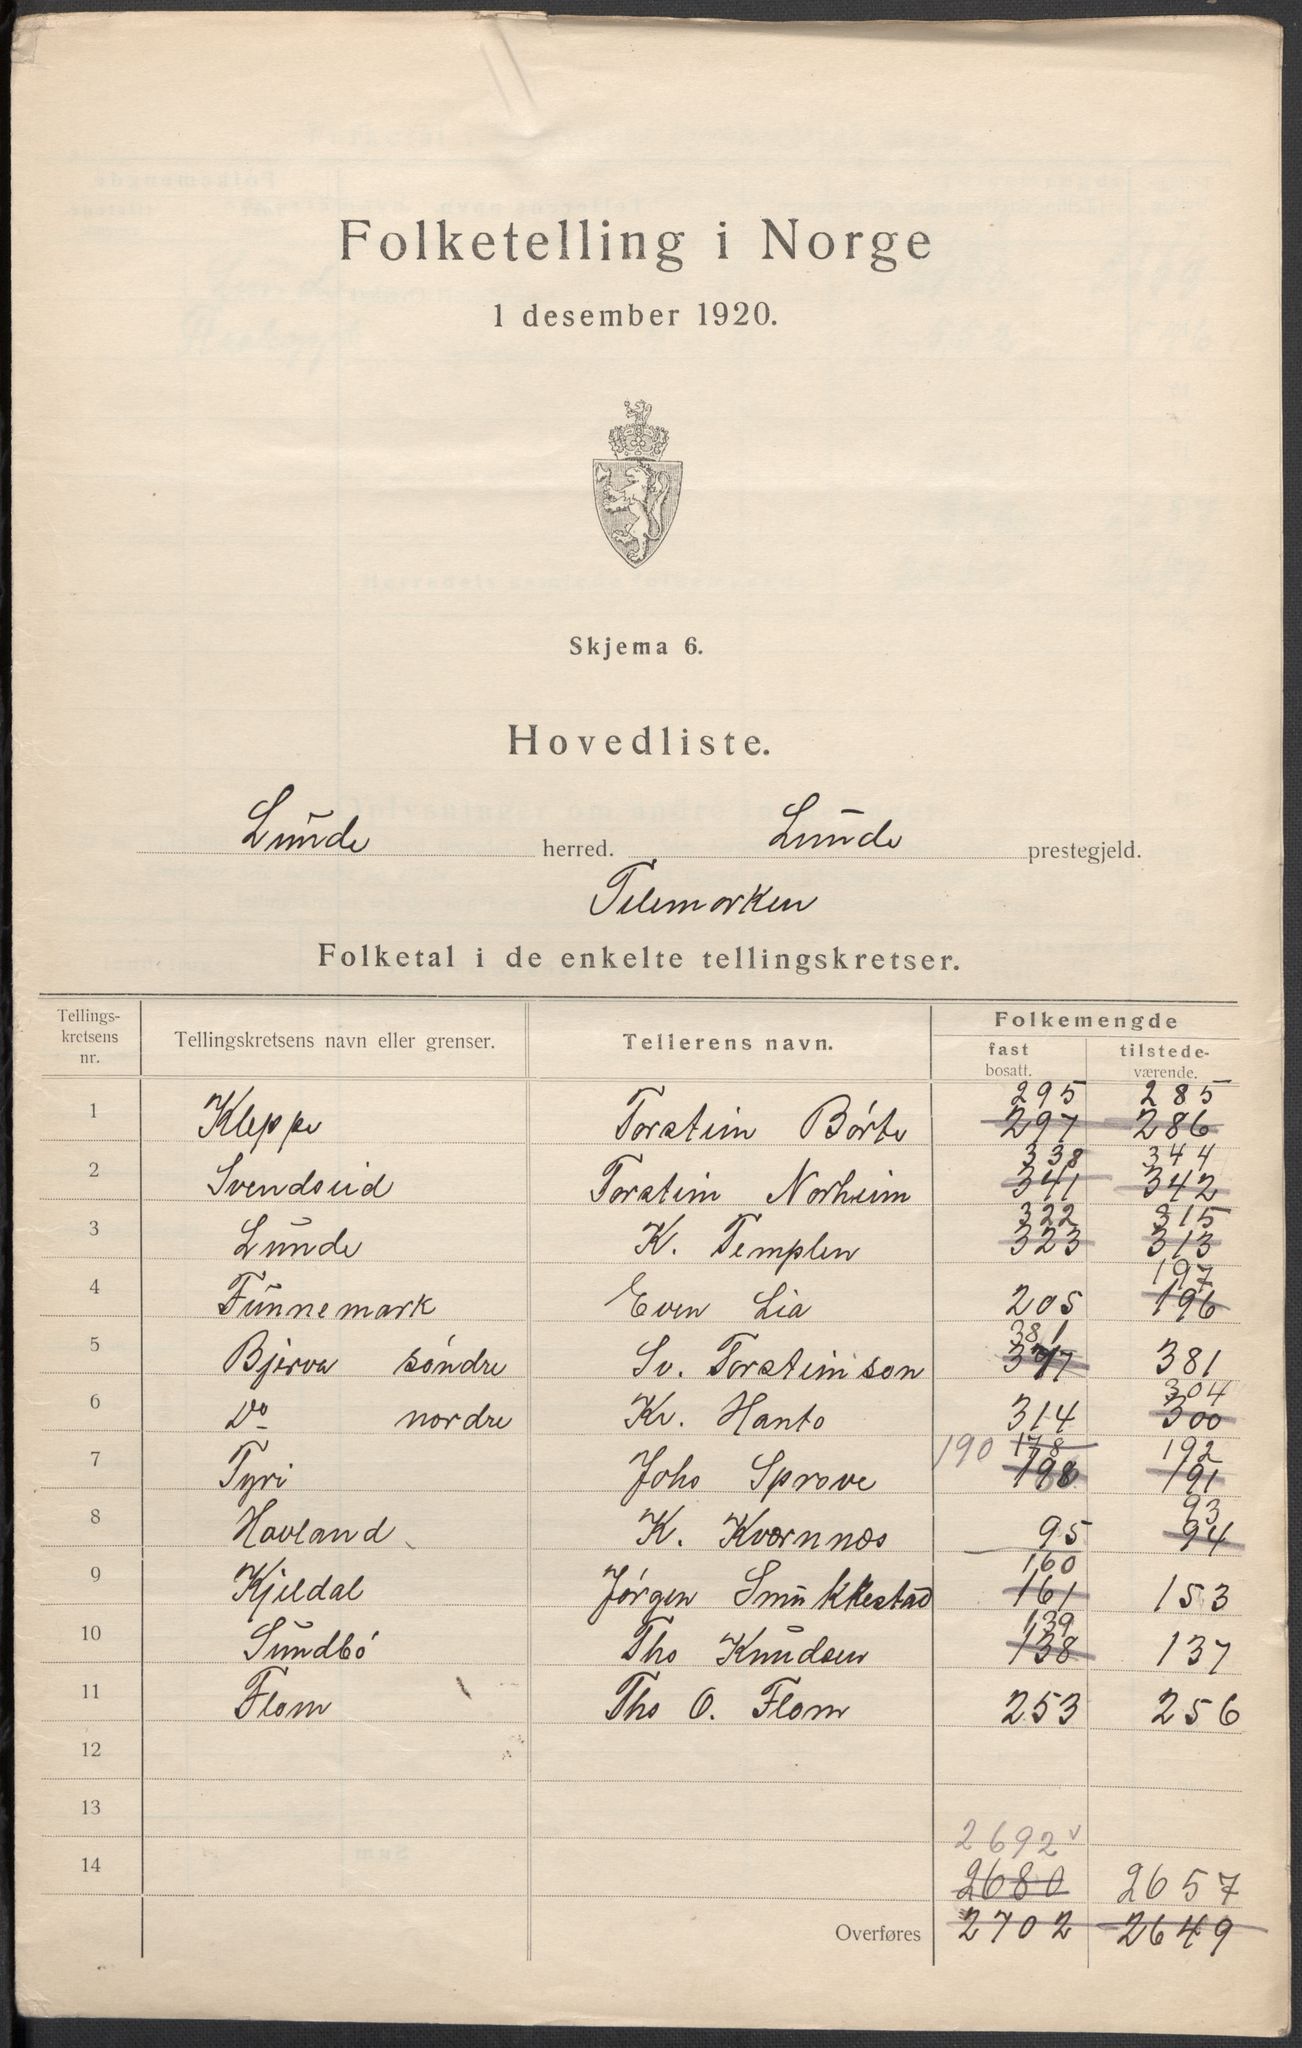 Folketelling i Norge
1 desember 1920.
Skjema 6.
Hovedliste.
Lunde herred. Lunde prestegjeld.
Telemarken
Folketal i de enkelte tellingskretser.
Tellings-kretsens nr. Tellingskretsens navn eller grenser. Tellerens navn. Folkemengde
fast bosatt. tilstede-værende.
295 285
1 Kleppe Torstein Børte 297 286
338 344
2 Svendseid Torstein Norheim 341 342
322 315
3 Lunde K. Templen 323 313
197
4 Funnemark Even Lia 205 196
381
5 Bjerva søndre Sv. Torsteinson 377 381
304
6 Do nordre Kr. Hanto 314 300
190 178 192
7 Tyri Johs Sprove 198 191
93
8 Havland K. Kværnnæs 95 94
160
9 Kjeldal Jørgen Smukkestad 161 153
139
10 Sundbö Ths Knudsen 138 137
11 Flom Ths O. Flom 253 256
12
13
2692 v
14 2680 2657
Overføres 2702 2649